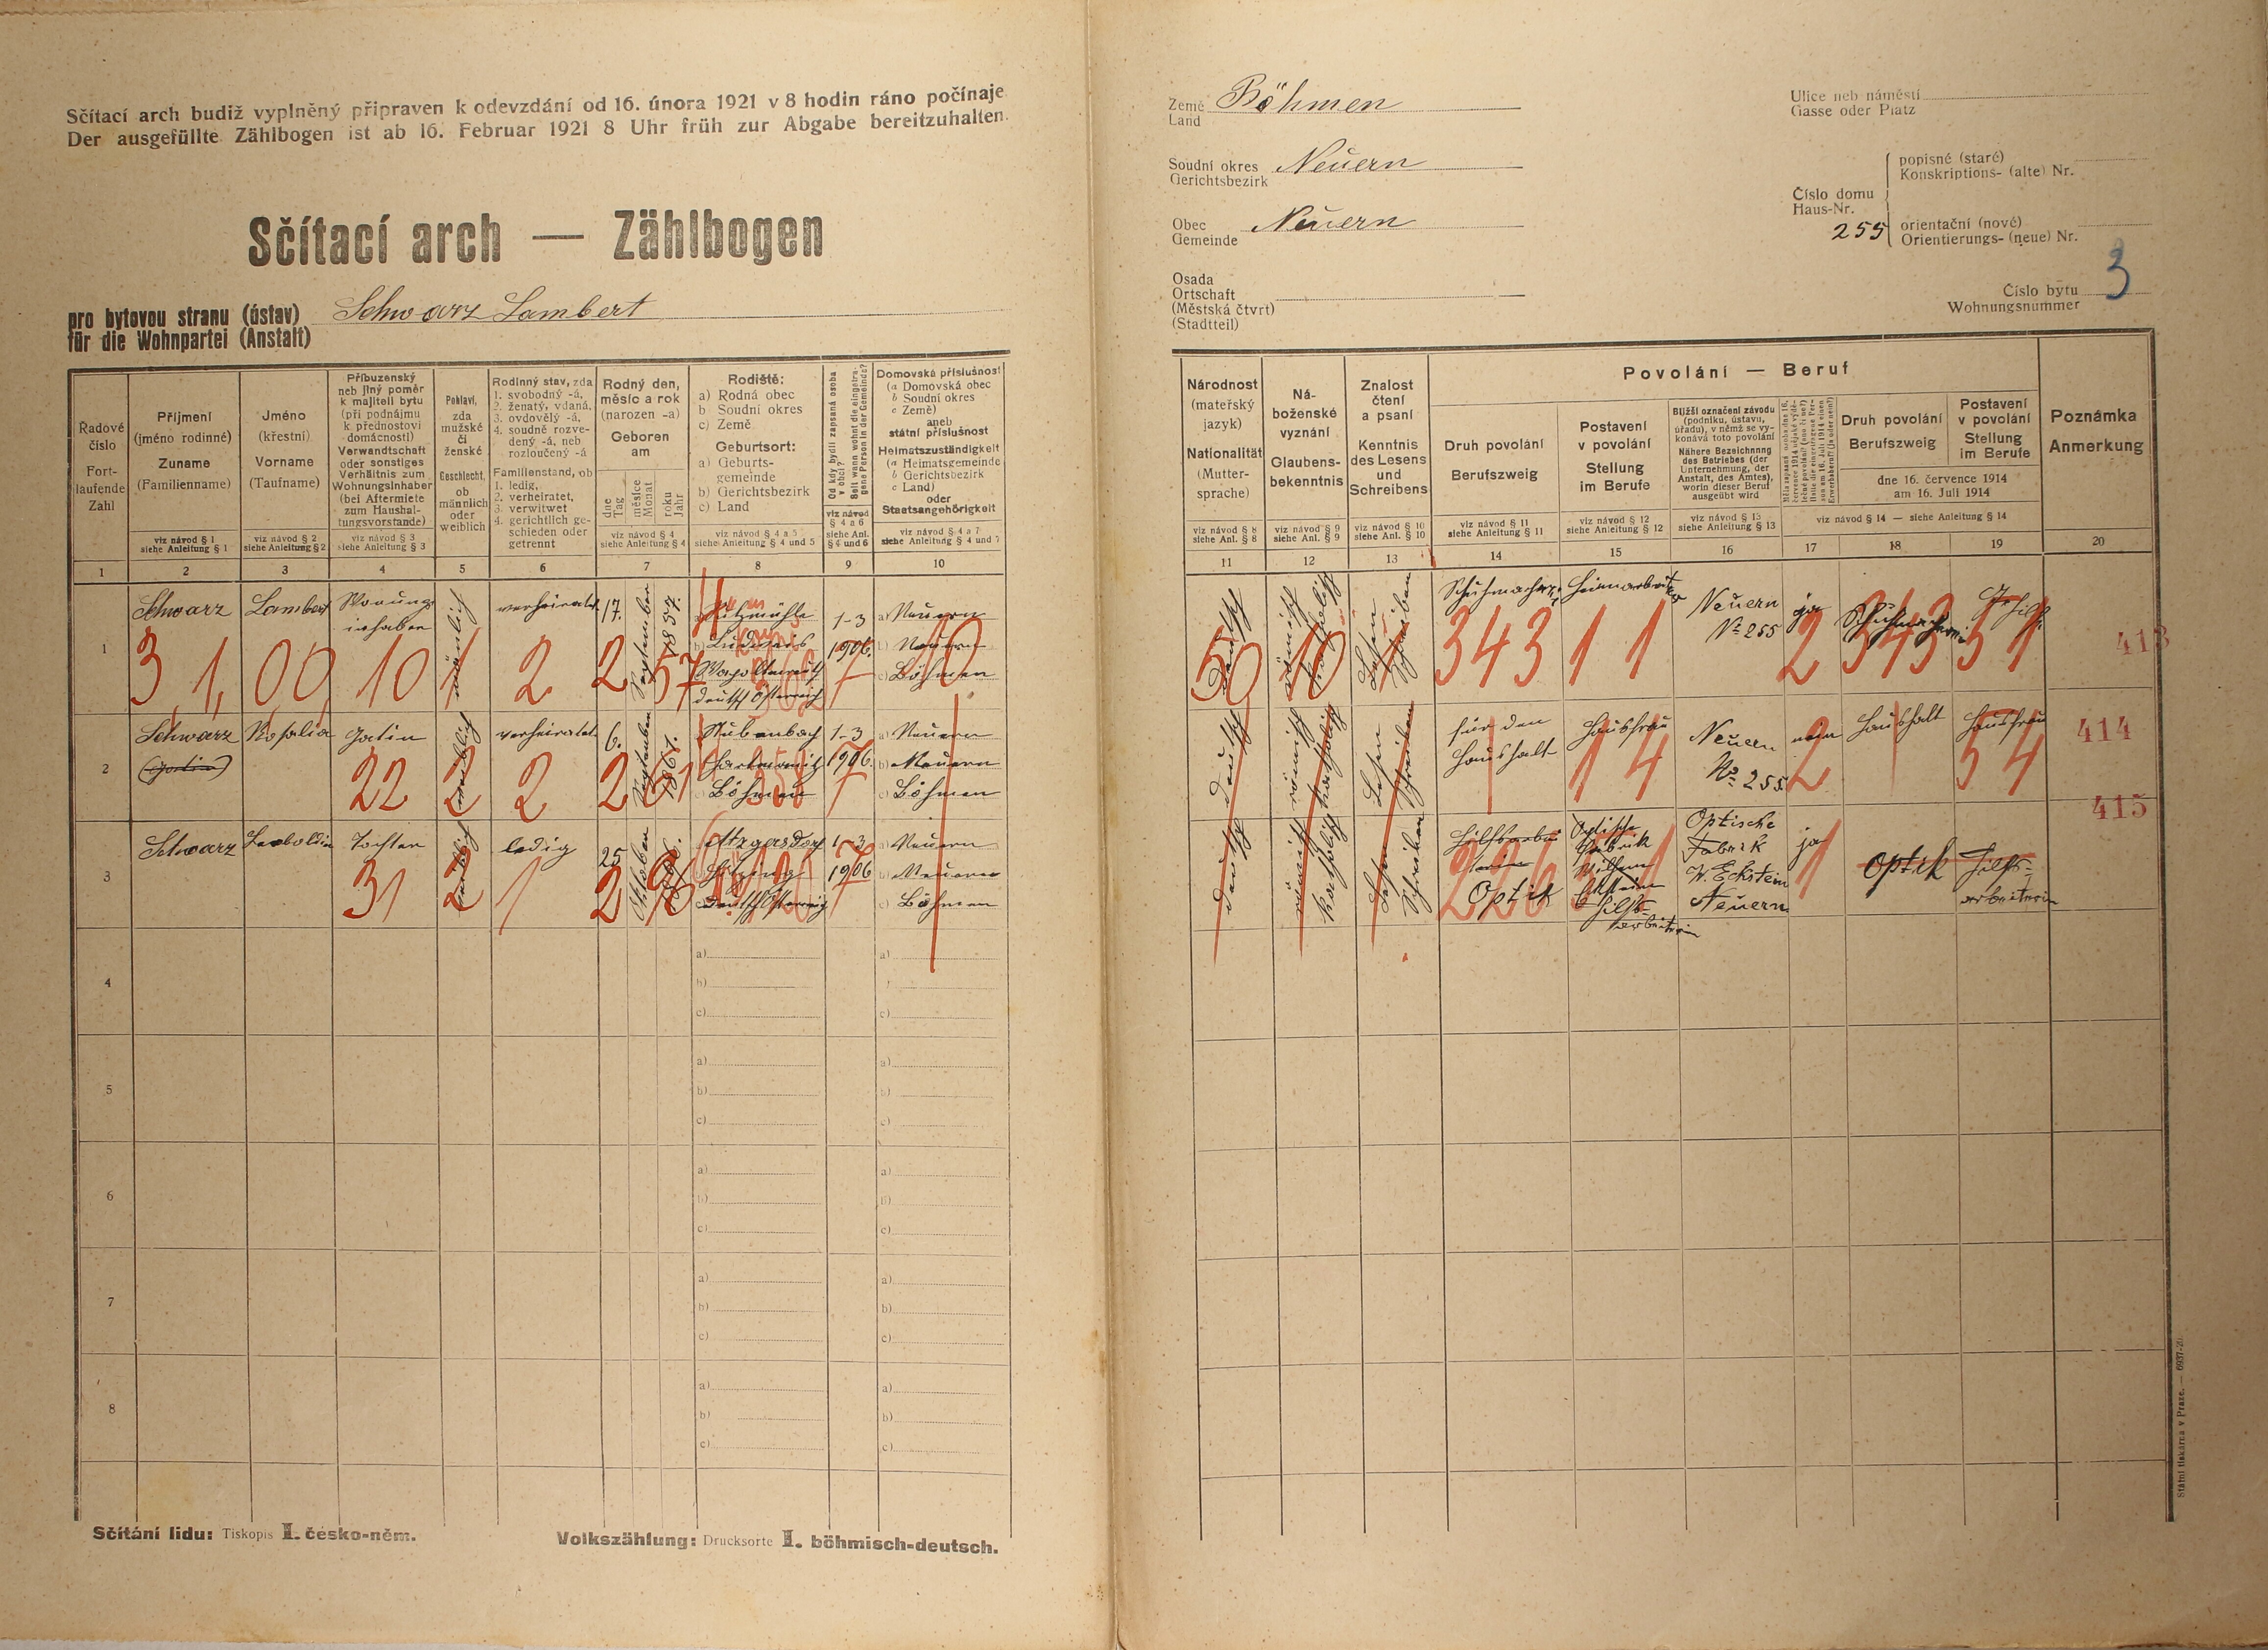 Sčítací arch budiž vyplněný připraven k odevzdání od 16. února 1921 v 8 hodin ráno počínaje
Der ausgefüllte Zählbogen ist ab 16. Februar 1921 8 Uhr früh zur Abgabe bereitzuhalten.
Sčítací arch — Zählbogen
pro bytovou stranu (ústav)
für die Wohnpartei (Anstalt)
Schwarz Lambert
Země
Land
Böhmen
Soudní okres
Gerichtsbezirk
Neuern
Obec
Gemeinde
Neuern
Osada
Ortschaft
(Městská čtvrt)
(Stadtteil)
Ulice neb náměstí
Gasse oder Platz
Číslo domu
Haus-Nr.
255
popisné (staré)
Konskriptions- (alte) Nr.
orientační (nové)
Orientierungs- (neue) Nr.
Číslo bytu
Wohnungsnummer
3
Řadové
číslo
Fort-
laufende
Zahl
Příjmení
(jméno rodinné)
Zuname
(Familienname)
viz návod § 1
siehe Anleitung § 1
Jméno
(křestní)
Vorname
(Taufname)
viz návod § 2
siehe Anleitung § 2
Příbuzenský
neb jiný poměr
k majiteli bytu
(při podnájmu
k přednostovi
domácnosti)
Verwandtschaft
oder sonstiges
Verhältnis zum
Wohnungsinhaber
(bei Aftermiete
zum Haushal-
tungsvorstande)
viz návod § 3
siehe Anleitung § 3
Pohlaví,
zda
mužské
či
ženské
Geschlecht,
ob
männlich
oder
weiblich
Rodinný stav, zda
1. svobodný -á,
2. ženatý, vdaná,
3. ovdovělý -á,
4. soudně rozve-
dený -á, neb
rozloučený -á
Familienstand, ob
1. ledig,
2. verheiratet,
3. verwitwet
4. gerichtlich ge-
schieden oder
getrennt
Rodný den,
měsíc a rok
(narozen -a)
Geboren
am
dne
Tag
měsíce
Monat
roku
Jahr
viz návod § 4
siehe Anleitung § 4
Rodiště:
a) Rodná obec
b) Soudní okres
c) Země
Geburtsort:
a) Geburts-
gemeinde
b) Gerichtsbezirk
c) Land
viz návod § 4 a 5
siehe Anleitung § 4 und 5
Od kdy bydlí zapsaná osoba
v obci?
Seit wann wohnt die eingetra-
gene Person in der Gemeinde?
viz návod
§ 4 a 6
siehe Anl.
§ 4 und 6
Domovská příslušnost
(a Domovská obec
b Soudní okres
c Země)
aneb
státní příslušnost
Heimatszuständigkeit
(a Heimatsgemeinde
b Gerichtsbezirk
c Land)
oder
Staatsangehörigkeit
viz návod § 4 a 7
siehe Anleitung § 4 und 7
Národnost
(mateřský
jazyk)
Nationalität
(Mutter-
sprache)
viz návod § 8
siehe Anl. § 8
Ná-
boženské
vyznání
Glaubens-
bekenntnis
viz návod § 9
siehe Anl. § 9
Znalost
čtení
a psaní
Kenntnis
des Lesens
und
Schreibens
viz návod § 10
siehe Anl. § 10
Povolání — Beruf
Druh povolání
Berufszweig
viz návod § 11
siehe Anleitung § 11
Postavení
v povolání
Stellung
im Berufe
viz návod § 12
siehe Anleitung § 12
Bližší označení závodu
(podniku, ústavu,
úřadu), v němž se vy-
konává toto povolání
Nähere Bezeichnung
des Betriebes (der
Unternehmung, der
Anstalt, des Amtes),
worin dieser Beruf
ausgeübt wird
viz návod § 13
siehe Anleitung § 13
Druh povolání
Berufszweig
Postavení
v povolání
Stellung
im Berufe
dne 16. července 1914
am 16. Juli 1914
viz návod § 14 — siehe § 14
Poznámka
Anmerkung
1 2 3 4 5 6 7 8 9 10 11 12 13 14 15 16 17 18 19 20
1
Schwarz
Lambert
männlich
verheiratet
17.
September
1857.
deutsch Österreich
1-3
1906.
a) Neuern
b) Neuern
c) Böhmen
deutsch
römisch
katholisch
Lesen
Schreiben
Schuhmacher
Heimarbeiter
Neuern
No 255
ja
3 1, 00, 10 1 2 2 57 7 10
50 10 1 343 1 1 2 343 51
413
2
Schwarz
(Gatin)
Rosalia
Gatin
weiblich
verheiratet
6.
September
1861.
Stubenbach
Hartmanitz
Böhmen
1-3
1906.
a) Neuern
b) Neuern
c) Böhmen
deutsch
römisch
katholisch
Lesen
Schreiben
für den
Haushalt
Hausfrau
Neuern
No 255
nein
Haushalt
Hausfrau
22 2 2 2 61 358 7
1 4 2 54
414
3
Schwarz
Leoboldin
Tochter
weiblich
ledig
25
Oktober
Atzgersdorf
Hitzing
1-3
1906
a) Neuern
b) Neuern
c) Böhmen
deutsch
römisch
katholisch
Lesen
Schreiben
Optik
Optische
Fabrik
Hilfs-
arbeiterin
Optische
Fabrik
W. Eckstein
Neuern
ja
Optik
Hilfs-
arbeiterin
31 2 1 2 96 7
226 1
415
4
a)
b)
c)
5
a)
b)
c)
6
a)
b)
c)
7
a)
b)
c)
8
a)
b)
c)
Sčítání lidu: Tiskopis I. česko-něm.
Volkszählung: Drucksorte I. böhmisch-deutsch.
Státní tiskárna v Praze. — 6937-20.